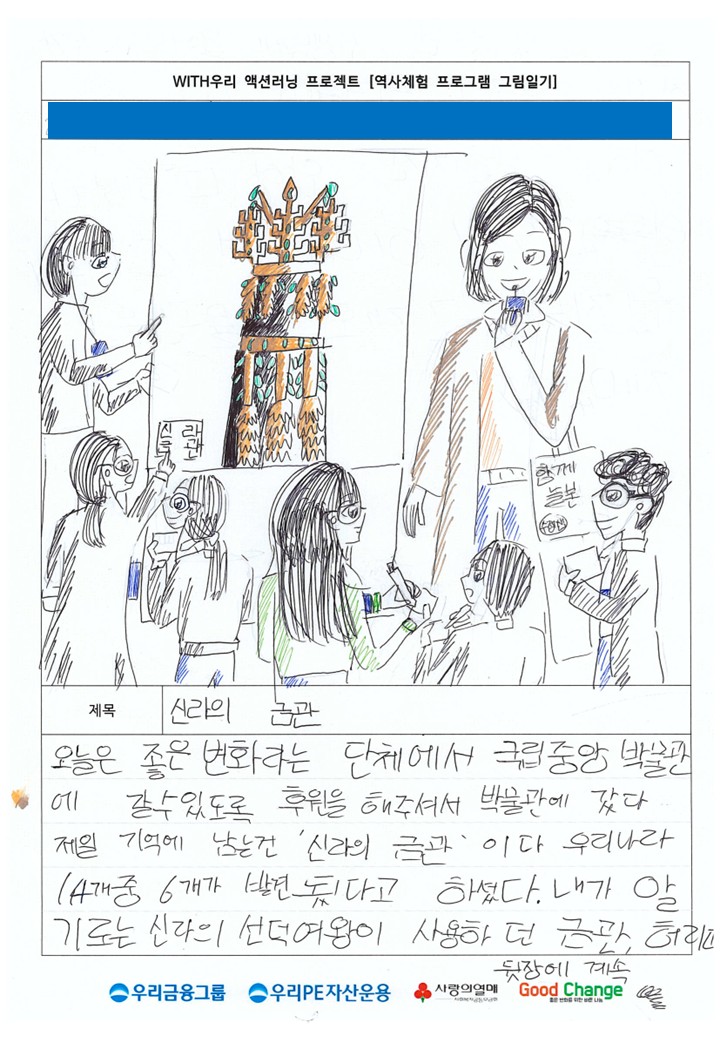 WITH우리 액션러닝 프로젝트 [역사체험 프로그램 그림일기]
신라
금관
함께
늘본
제목
신라의 금관
오늘은 좋은변화라는 단체에서 국립중앙 박물관
에 갈수있도록 후원을 해주셔서 박물관에 갔다
제일 기억에 남는건 '신라의 금관' 이다 우리나라
14개중 6개가 발견됬다고 하셨다. 내가 알
기로는 신라의 선덕여왕이 사용하던 금관, 허리띠
뒷장에 계속
우리금융그룹 우리PE자산운용 사랑의열매 Good Change
사회복지공동모금회
좋은 변화를 위한 바른 나눔